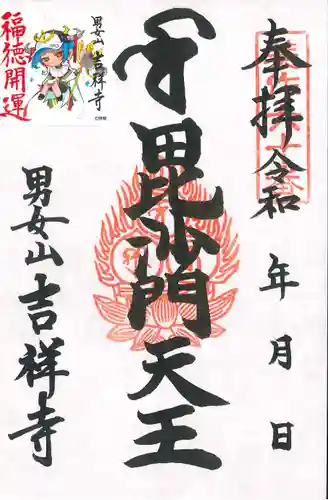 奉拝
令和 年 月 日
毘沙門天王
男女山 吉祥寺
福徳開運
男女山吉祥寺